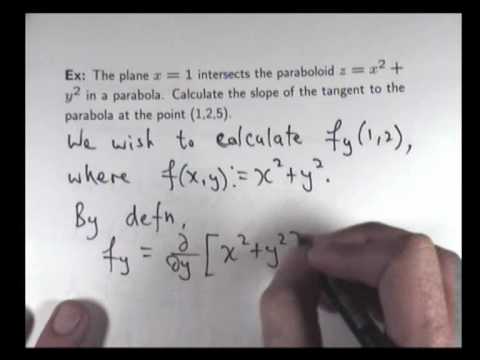 Ex: The plane x = 1 intersects the paraboloid z = x² +
y² in a parabola. Calculate the slope of the tangent to the
parabola at the point (1,2,5).
We wish to calculate f_y(1,2),
where f(x,y) := x² + y².
By defn,
f_y = ∂/∂y [x² + y²]